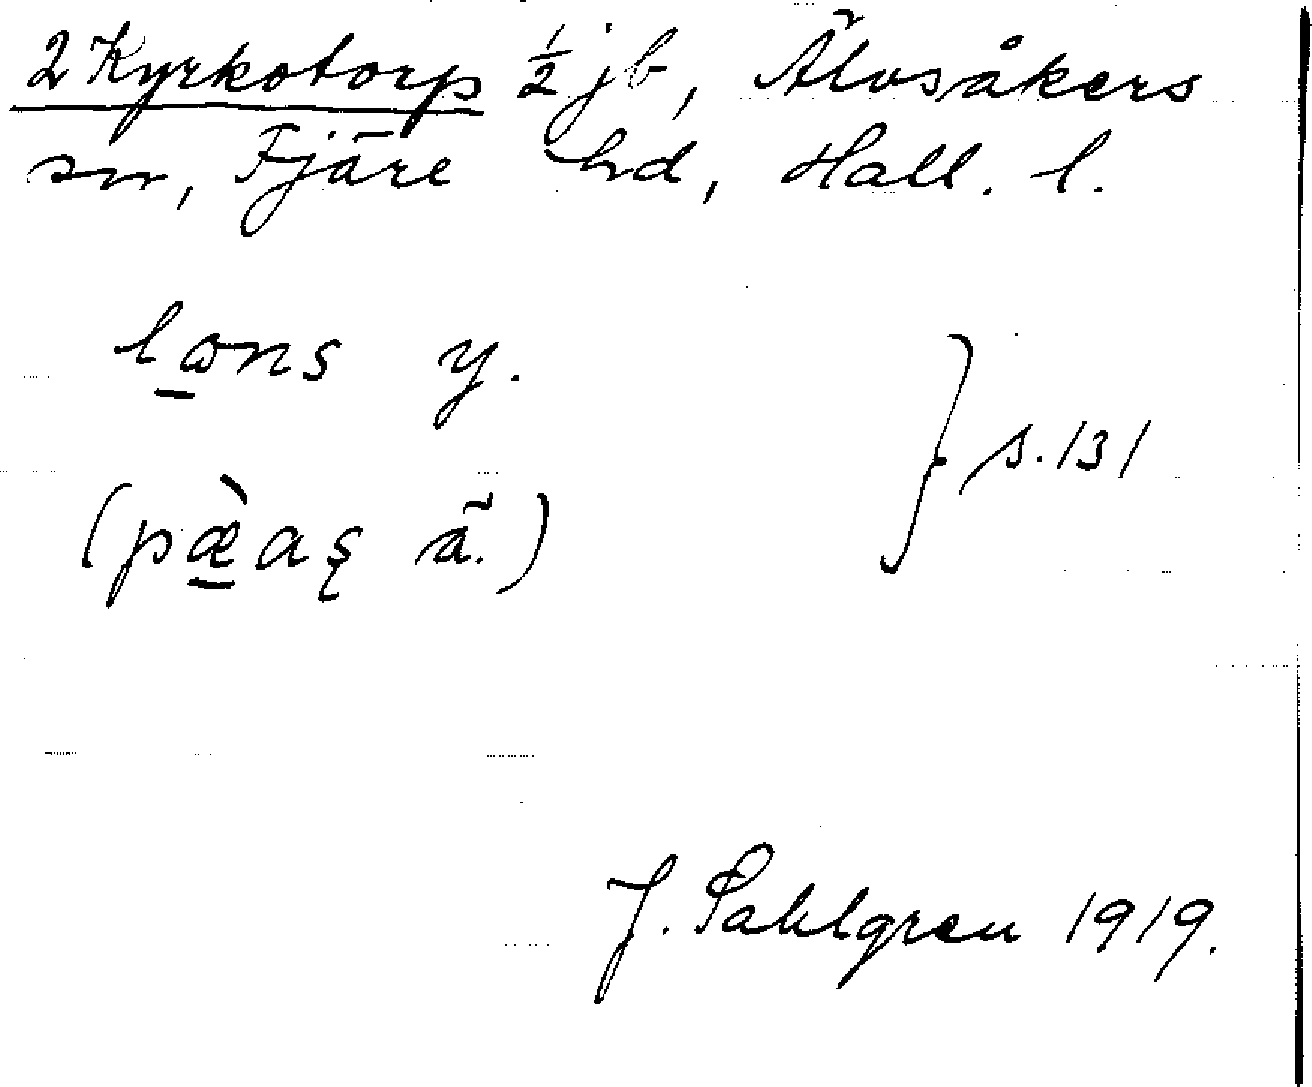 2 Kyrkotorp ½ jb, Älvsåkers
sn, Fjäre hd, Hall. l.
lɷns y.
} s. 131
(pæ̀aş ä.)
J. Sahlgren 1919.